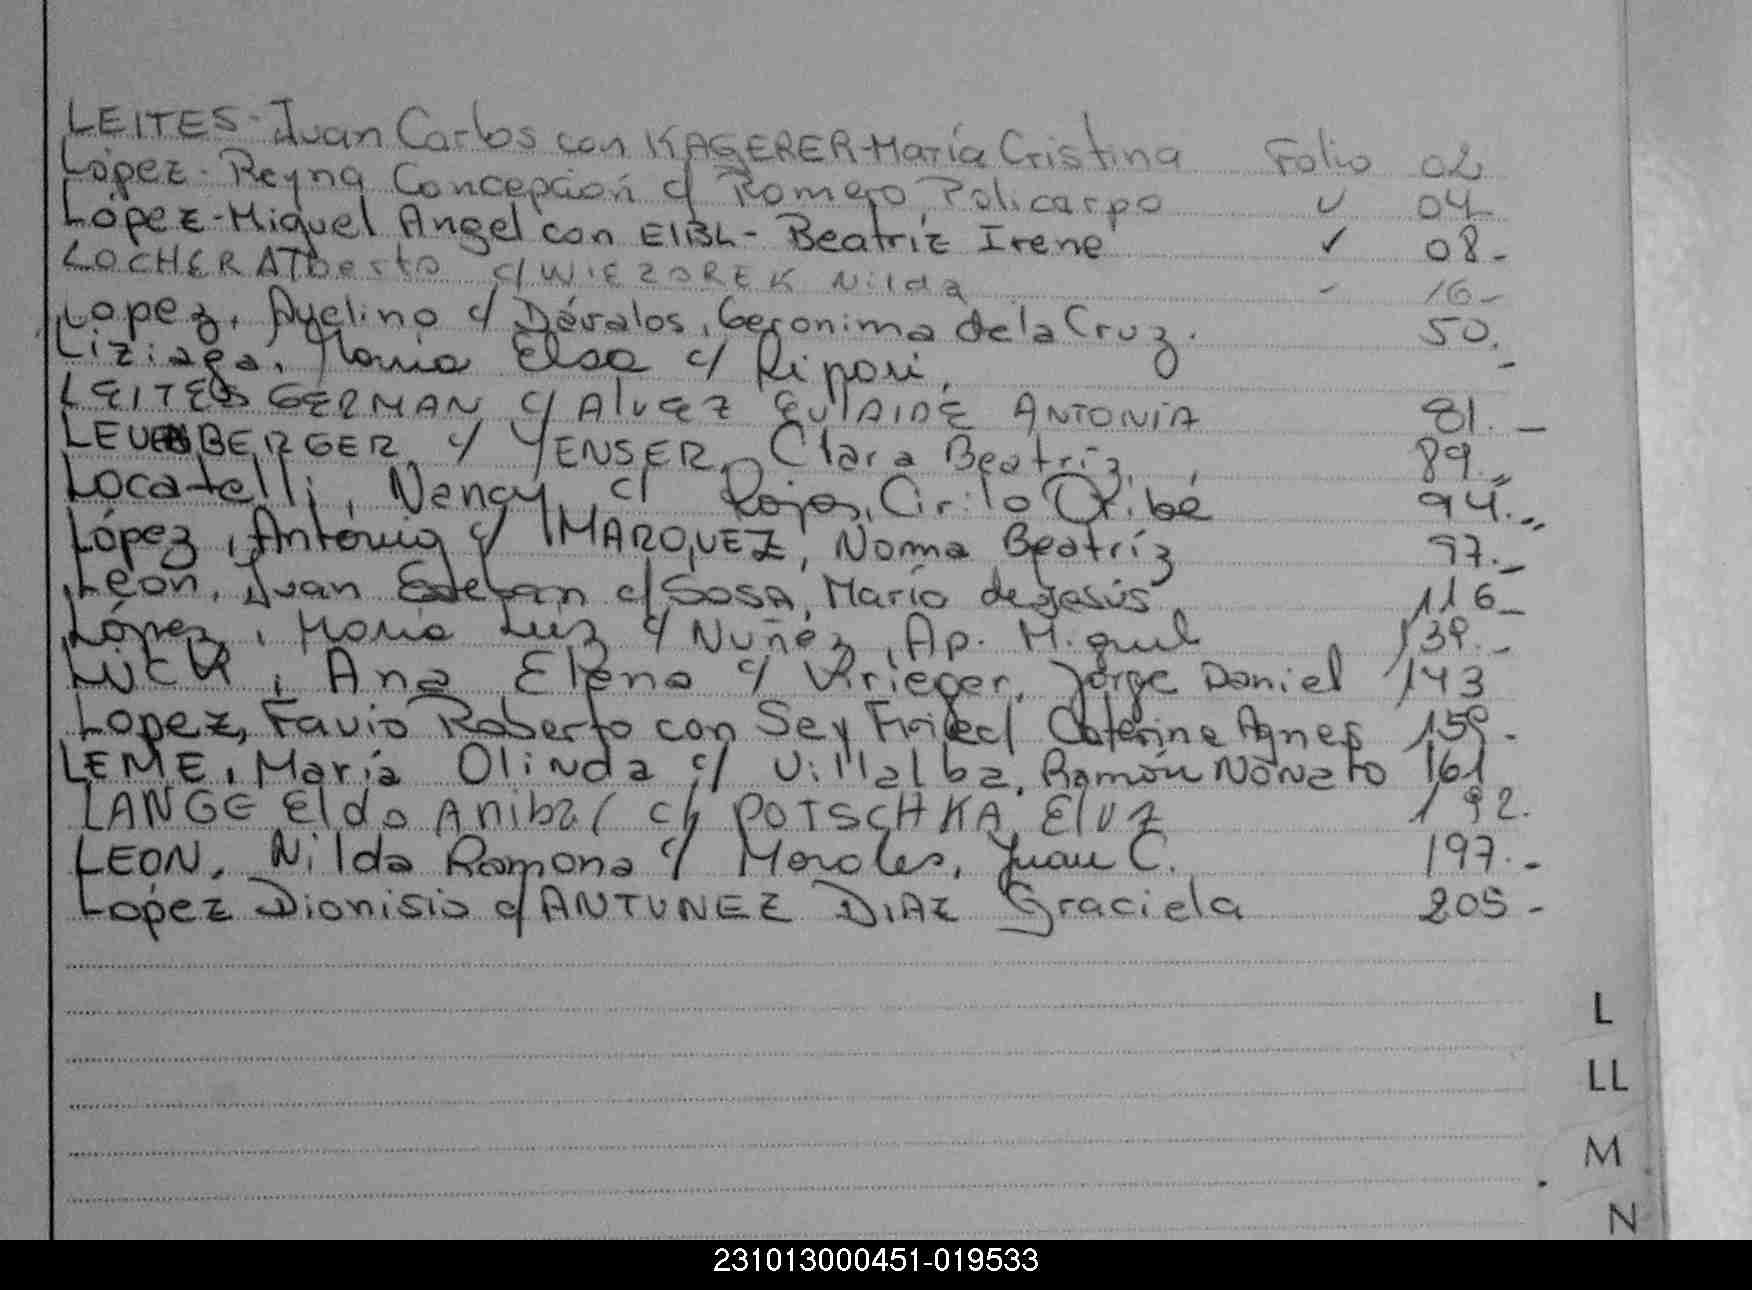 LEITES - Juan Carlos con KAGERER - María Cristina Folio 02
López - Reyna Concepción c/ Romero, Policarpo ✓ 04
López - Miguel Angel con EIBL - Beatriz Irene ✓ 08 -
LOCHER Alberto c/ WIEZOREK Nilda - 16 -
Lopez, Avelino c/ Dávalos, Geronima de la Cruz. 50. -
Liziaga, Maria Elsa c/ Ripari,
LEITES GERMAN c/ Alvez EULAIDE ANTONIA 81. -
BERGER c/ YENSER, Clara Beatriz, 89. -
Locatelli, Nancy c/ Rojas, Cirilo Oribé 94. -
López, Antonio c/ MARQUEZ, Norma Beatríz 97. -
Leon, Juan Esteban c/ SOSA, María de Jesús 116 -
López, María Luz c/ Nuñez, Ap. Miguel 139. -
LUCK, Ana Elena c/ Krieger, Jorge Daniel 143
Lopez, Favio Roberto con Caterine Agnes 159 -
LEME, María Olinda c/ Villalba, Ramón Nonato 161
LANGE Eldo Anibal c/ POTSCHKA, Eluz 192.
LEON, Nilda Ramona c/ Morales, Juan C. 197. -
López Dionisio c/ ANTUNEZ DIAZ Graciela 205 -
L
LL
M
N
231013000451-019533